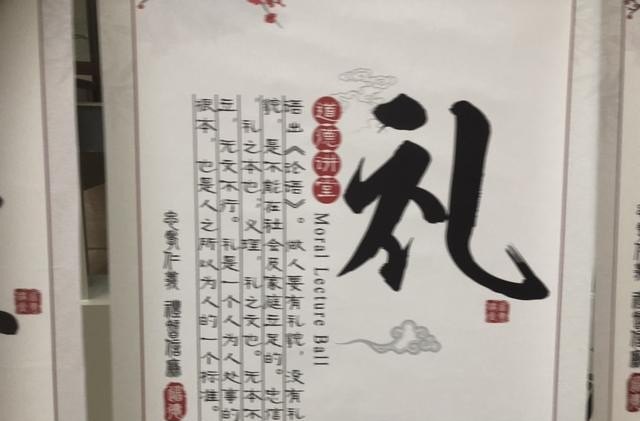 礼
道德讲堂
Moral Lecture Ball
语出《论语》。做人要有礼貌，没有礼
貌，是不能在社会及家庭立足的。忠信
礼之本也，义理，礼之文也。无本不
立，无文不行。礼是一个人为人处事的
根本，也是人之所以为人的一个标准。
忠孝仁义 禮智信廉